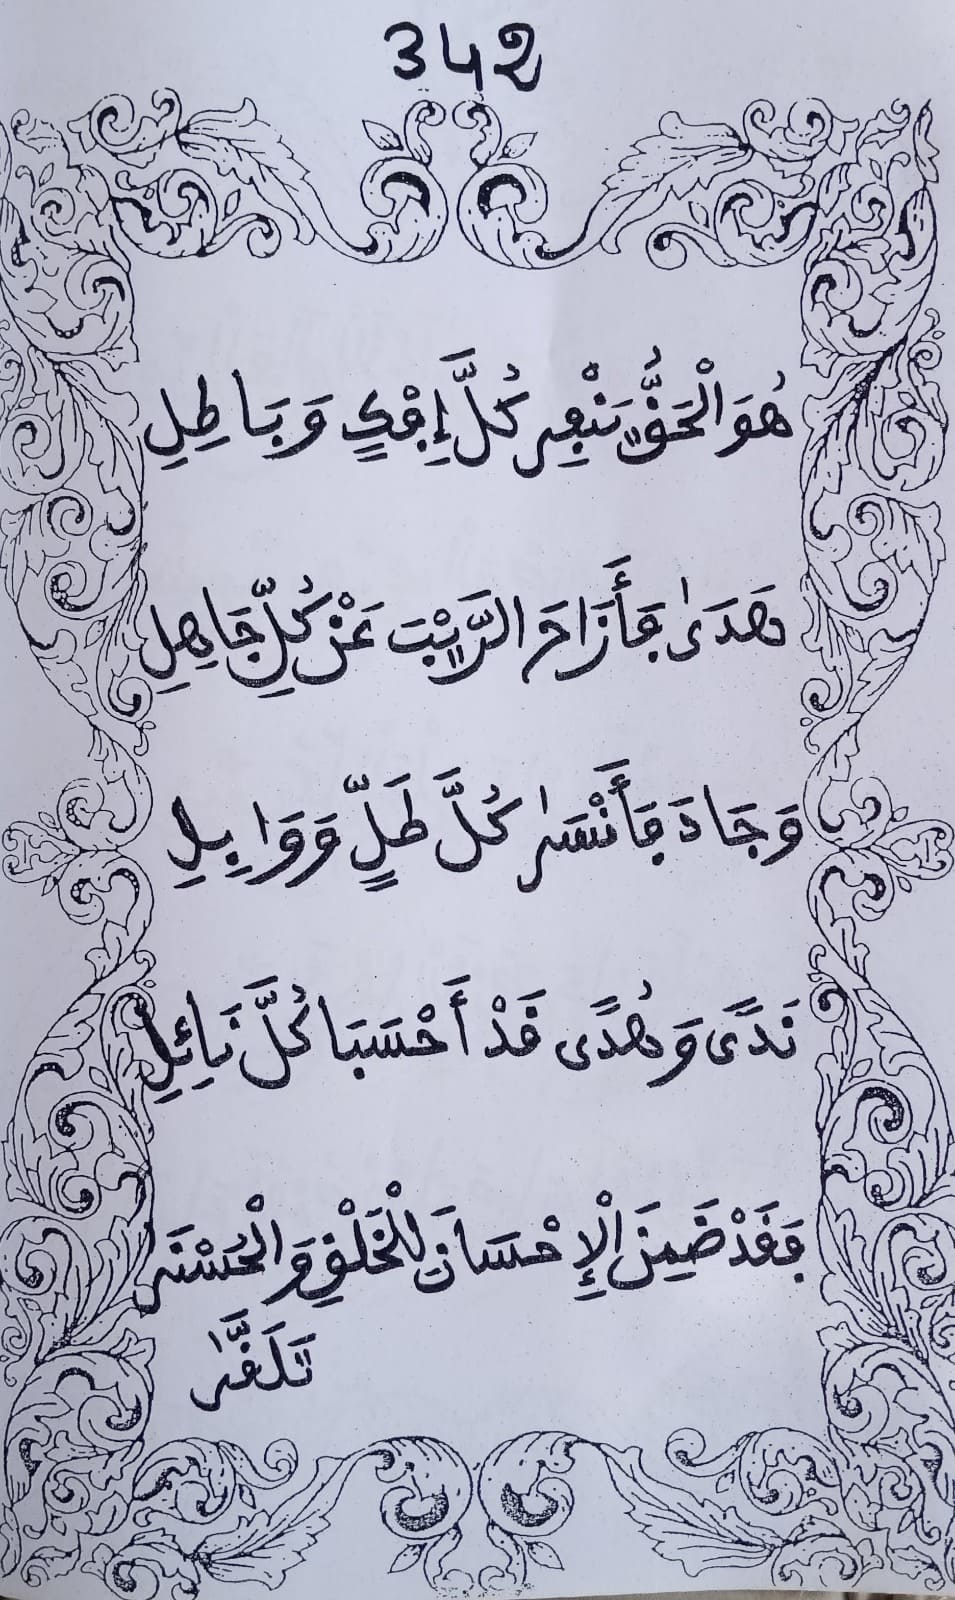 342
هُوَ الْحَقُّ يَنْفِي كُلَّ إِفْكٍ وَبَاطِلِ
هَدَىٰ فَأَزَاحَ الرَّيْبَ عَنْ كُلِّ جَاهِلِ
وَجَادَ فَأَنْسَىٰ كُلَّ طَلٍّ وَوَابِلِ
نَدًى وَهُدًى قَدْ أَحْسَبَا كُلَّ نَائِلِ
فَقَدْ ضَمِنَ الْإِحْسَانَ لِلْخَلْقِ وَالْحُسْنَى
تَلَقَّىٰ